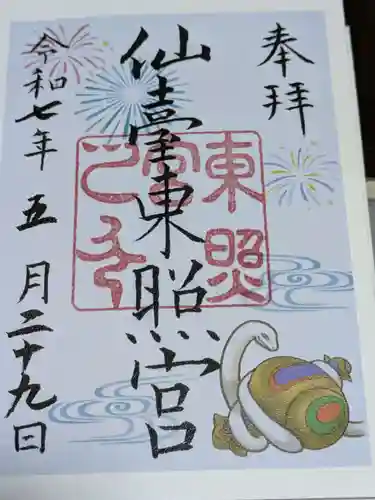 奉拝
仙臺東照宮
東照宮
令和七年五月二十九日